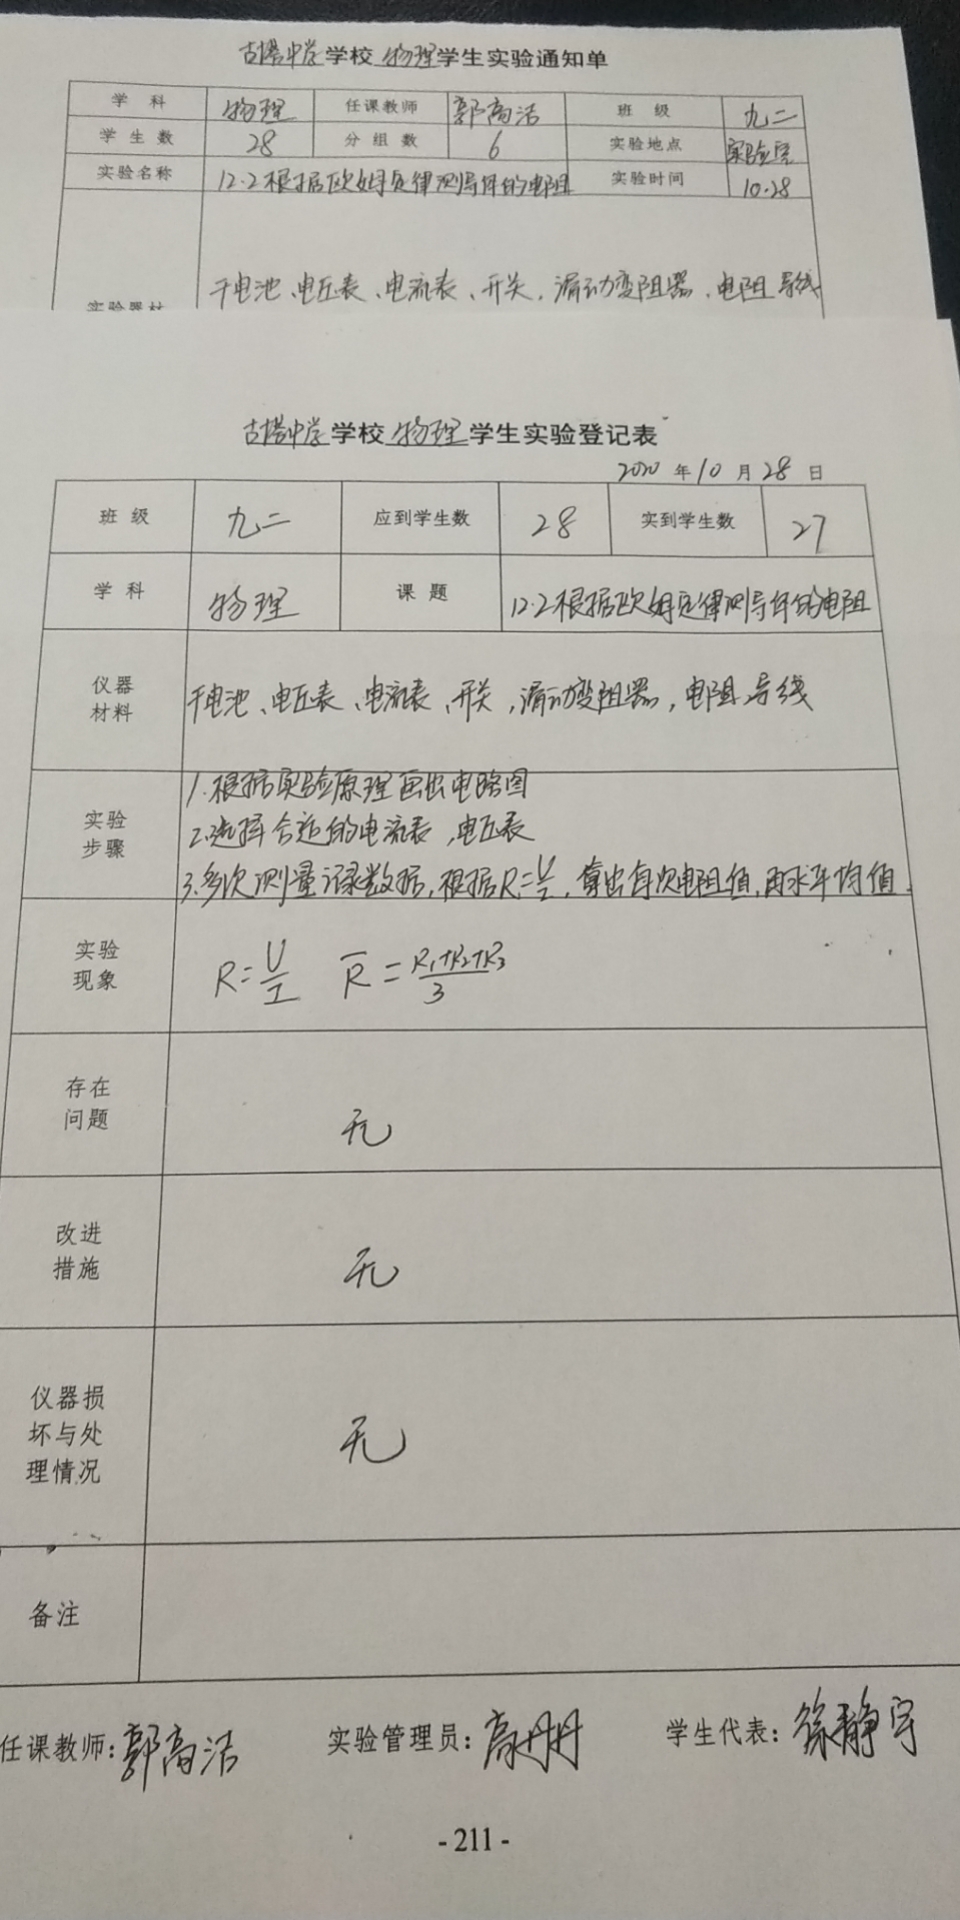 古塔中学学校物理学生实验通知单
学科 物理 任课教师 郭高洁 班级 九二
学生数 28 分组数 6 实验地点 实验室
实验名称 12.2根据欧姆定律测导体的电阻 实验时间 10.28
实验器材 干电池、电压表、电流表、开关,滑动变阻器、电阻导线
古塔中学学校物理学生实验登记表
2020年10月28日
班级 九二 应到学生数 28 实到学生数 27
学科 物理 课题 12.2根据欧姆定律测导体的电阻
仪器材料 干电池、电压表、电流表、开关,滑动变阻器,电阻导线
实验步骤 1.根据实验原理画出电路图
2.选择合适的电流表,电压表
3.多次测量记录数据,根据R=U/I,算出每次电阻值,再求平均值.
实验现象 R=U/I R̄=R1+R2+R3/3
存在问题 无
改进措施 无
仪器损坏与处理情况 无
备注
任课教师:郭高洁 实验管理员:高丹丹 学生代表:徐静宇
- 211 -